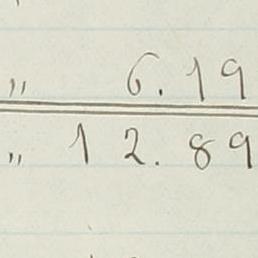 " 6.19
" 12.89